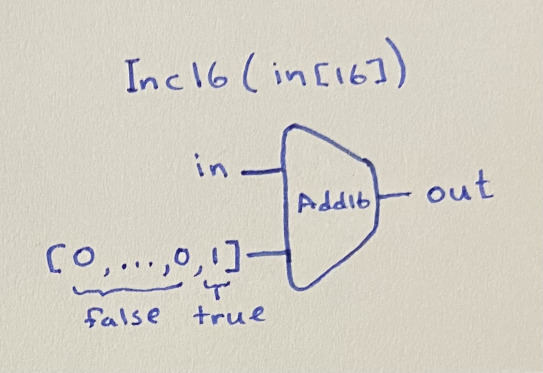 Inc16(in[16])
in
Add16
out
[0,...,0,1]
false true